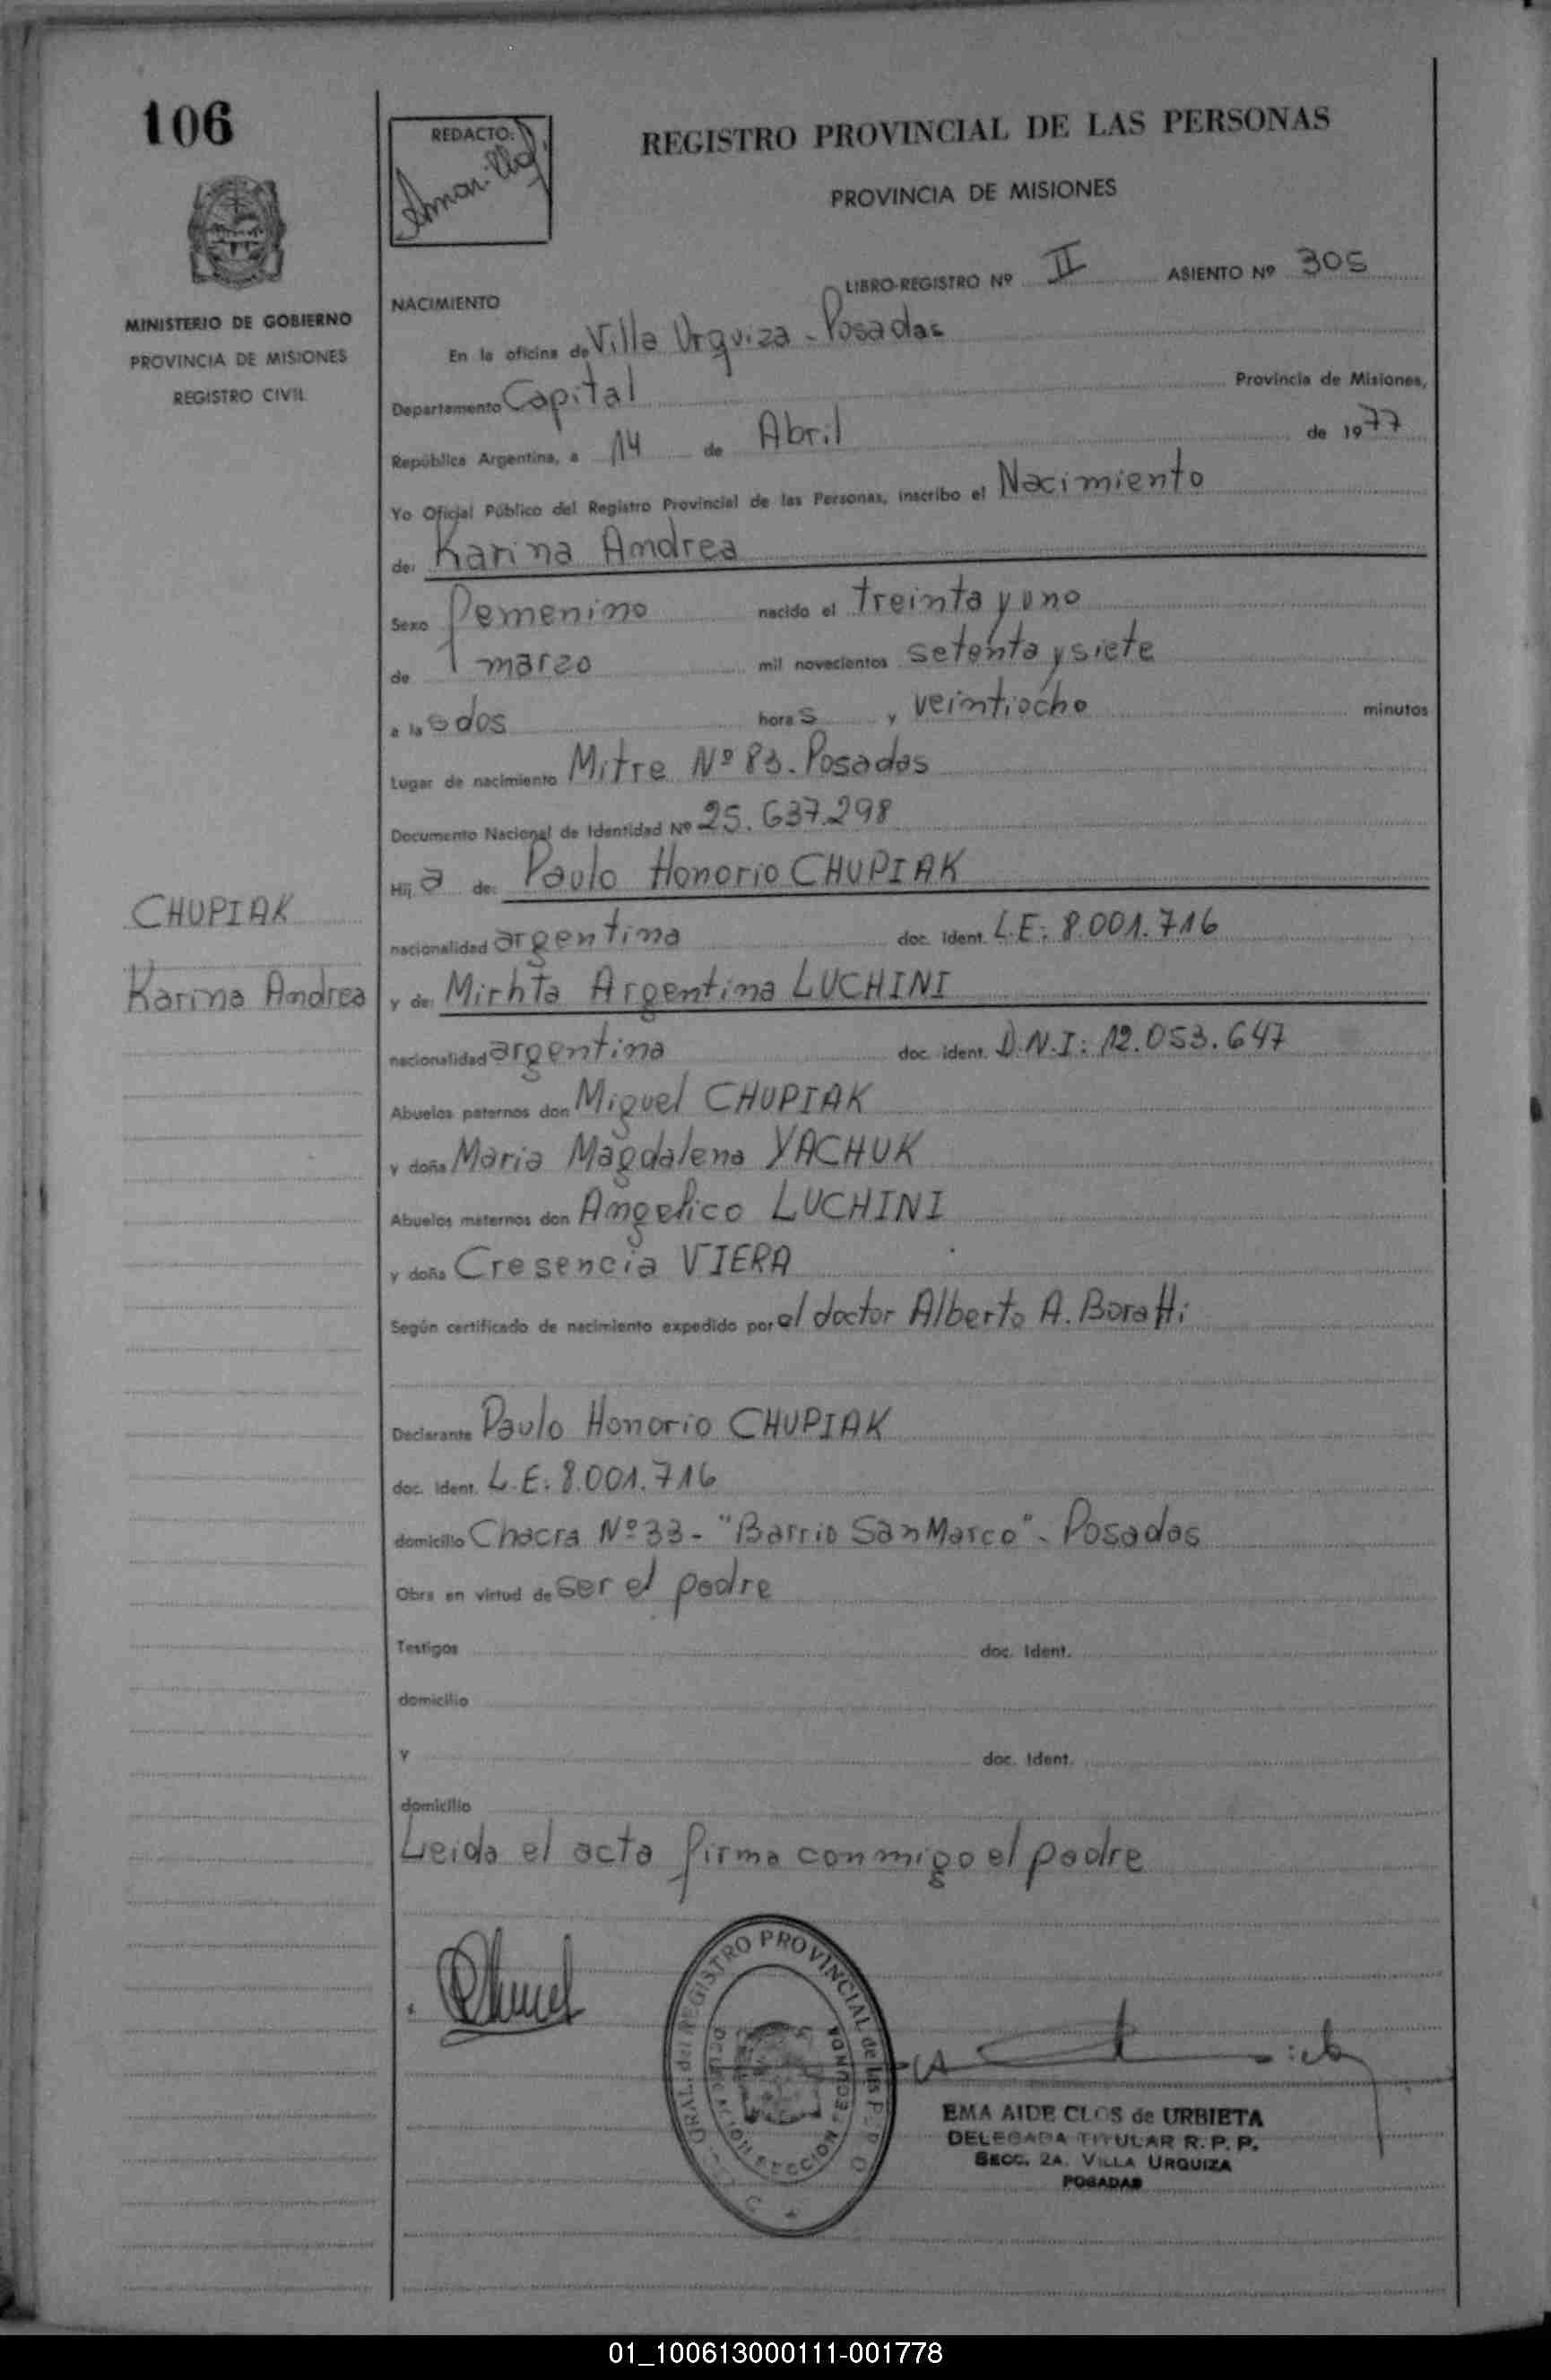 106
REDACTO:
REGISTRO PROVINCIAL DE LAS PERSONAS
PROVINCIA DE MISIONES
MINISTERIO DE GOBIERNO
PROVINCIA DE MISIONES
REGISTRO CIVIL
LIBRO-REGISTRO Nº II ASIENTO Nº 305
NACIMIENTO
En la oficina de Villa Urquiza - Posadas
Departamento Capital Provincia de Misiones,
República Argentina, a 14 de Abril de 1977
Yo Oficial Público del Registro Provincial de las Personas, inscribo el Nacimiento
de: Karina Andrea
Sexo femenino nacido el treinta y uno
de marzo mil novecientos setenta y siete
a las dos horas y veintiocho minutos
Lugar de nacimiento Mitre Nº 83. Posadas
Documento Nacional de Identidad Nº 25.637.298
Hija de: Paulo Honorio CHUPIAK
CHUPIAK
nacionalidad argentina doc. ident. L.E: 8.001.716
Karina Andrea
y de: Mirhta Argentina LUCHINI
nacionalidad argentina doc. ident. D.N.I: 12.053.647
Abuelos paternos don Miguel CHUPIAK
y doña Maria Magdalena YACHUK
Abuelos maternos don Angelico LUCHINI
y doña Cresencia VIERA
Según certificado de nacimiento expedido por el doctor Alberto A. Boratti
Declarante Paulo Honorio CHUPIAK
doc. ident. L.E: 8.001.716
domicilio Chacra Nº 33 - "Barrio San Marco" - Posadas
Obra en virtud de ser el padre
Testigos doc. ident.
domicilio
y doc. ident.
domicilio
Leida el acta firma conmigo el padre
REGISTRO PROVINCIAL de las
EMA AIDE CLOS de URBIETA
DELEGADA TITULAR R. P. P.
SECC. 2A. VILLA URQUIZA
POSADAS
01_100613000111-001778